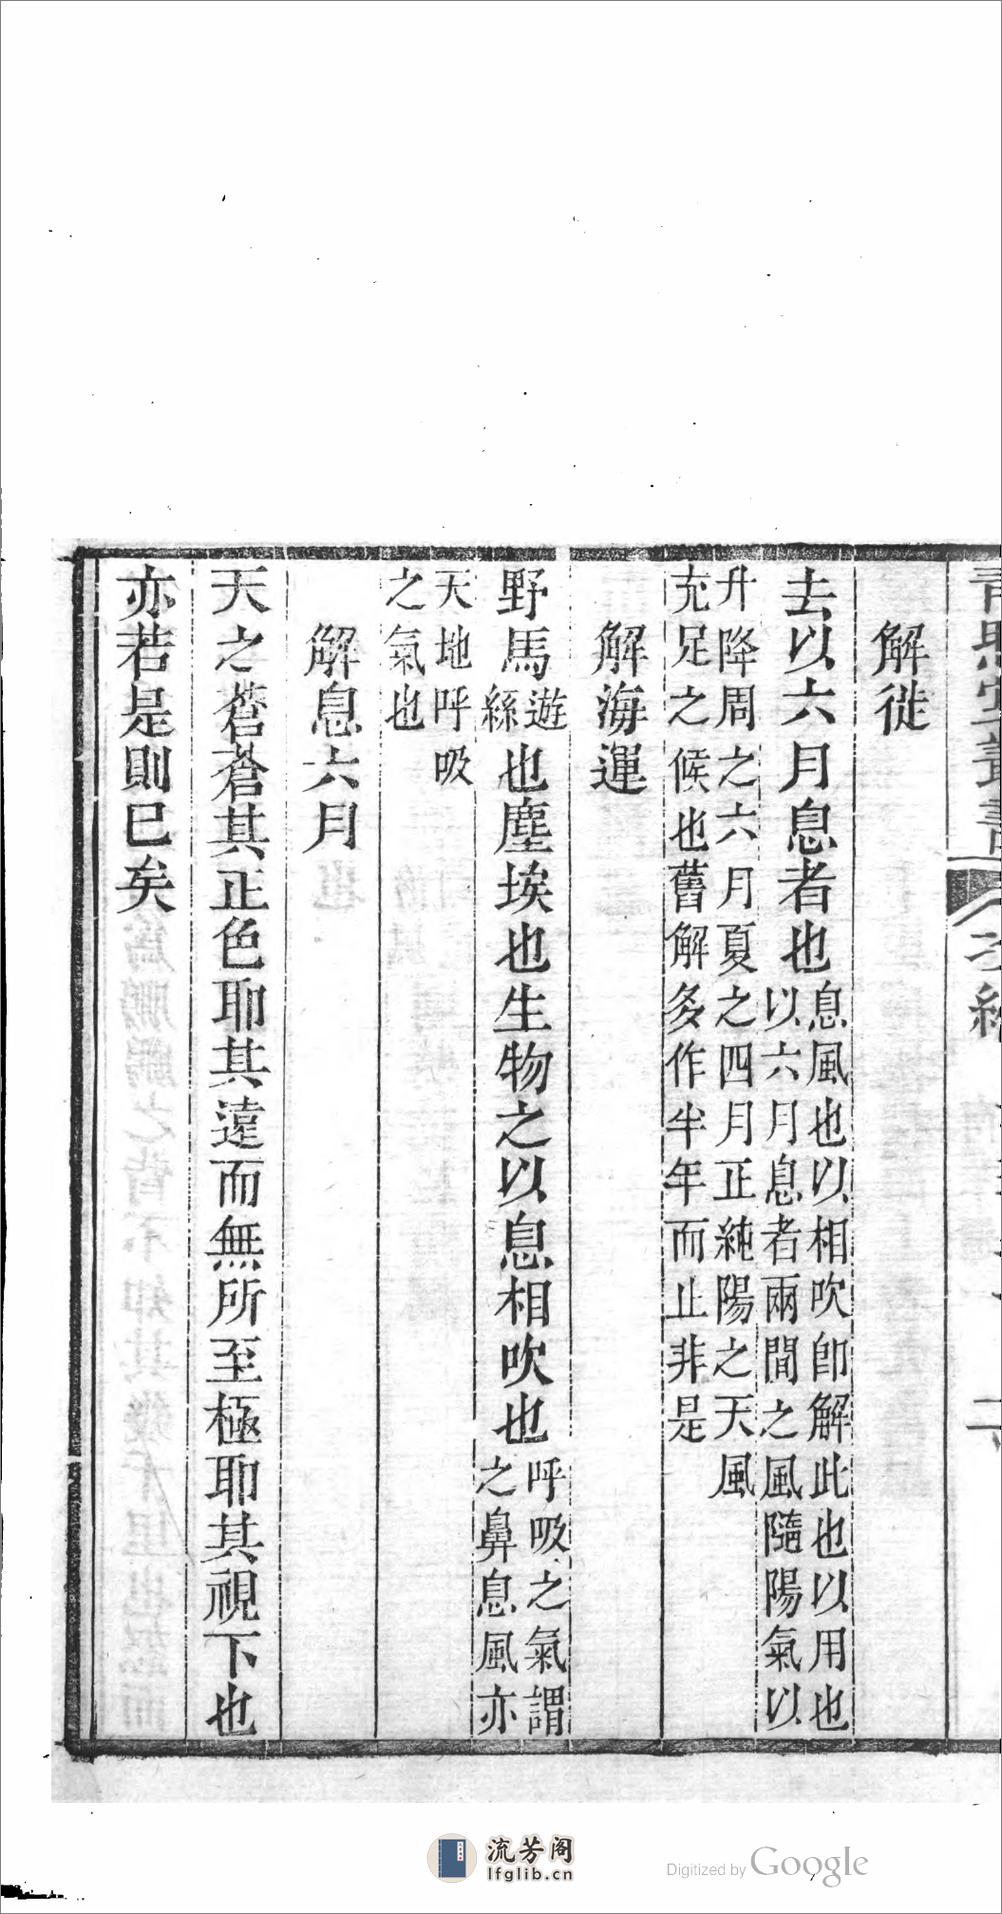 解徙
去以六月息者也
息風也以相吹卽解此也以用也
以六月息者兩間之風隨陽氣以
升降周之六月夏之四月正純陽之天風
充足之候也舊解多作半年而止非是
解海運
野馬
遊
絲
也塵埃也生物之以息相吹也
呼吸之氣謂
之鼻息風亦
天地呼吸
之氣也
解息六月
天之蒼蒼其正色耶其遠而無所至極耶其視下也
亦若是則已矣
流芳阁
lfglib.cn
Digitized by Google